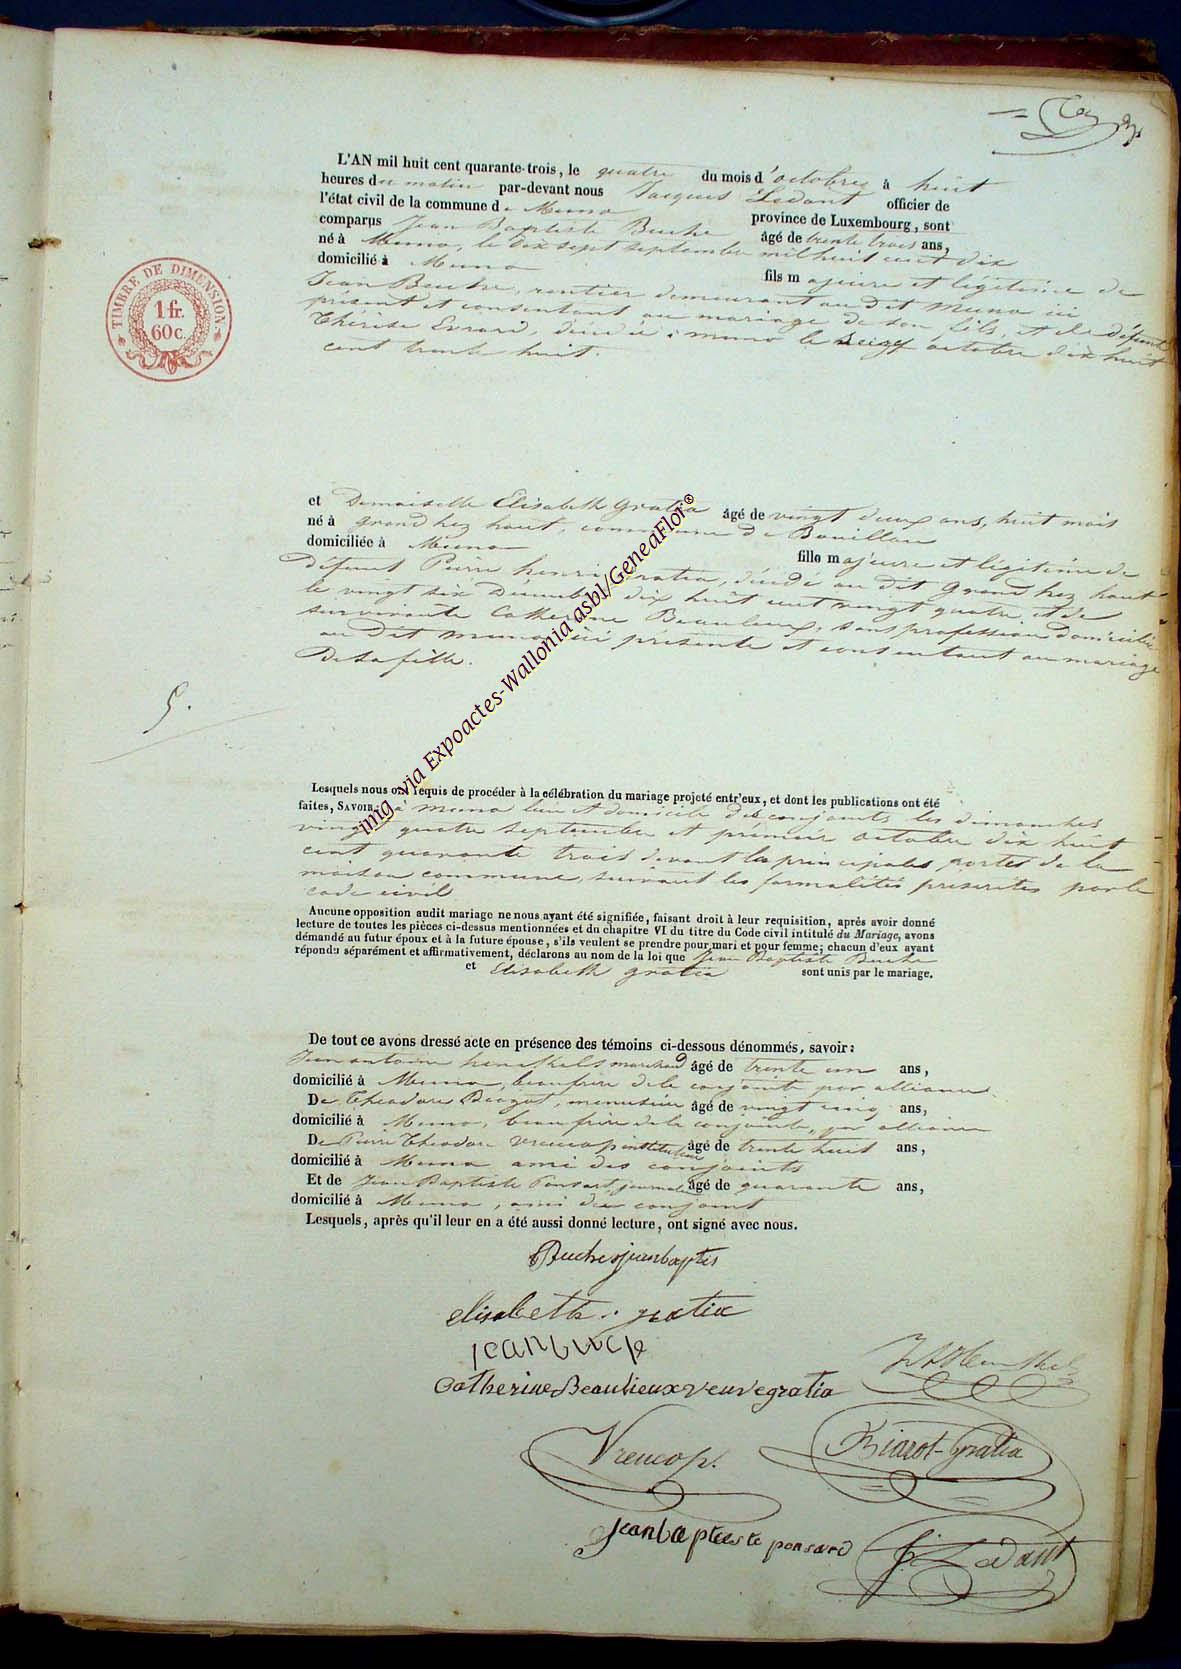 L'AN mil huit cent quarante-trois, le quatre du mois d'octobre à huit
heures du matin par-devant nous Jacques Ledant officier de
l'état civil de la commune de Muno province de Luxembourg, sont
comparus Jean Baptiste Buche âgé de trente trois ans,
né à Muno, le dix sept septembre mil huit cent dix
domicilié à Muno fils majeure et légitime de
Jean Buche, rentier demeurant au dit Muno ici
présent et consentant au mariage de son fils, et de défunte
Thérèse Evrard, décédée à muno le seize octobre dix huit
cent trente huit.
TIMBRE DE DIMENSION
1 fr.
60 c.
et Demoiselle Elisabeth Gratia âgé de vingt deux ans, huit mois
né à grand hez haut, commune de Bouillon
domiciliée à Muno fille majeure et légitime de
défunt Pierre henri Gratia, décédé au dit Grand hez haut
le vingt six Décembre dix huit cent vingt quatre et de
survivante Catherine Beaulieux, sans profession domiciliée
au dit muno ici présente et consentant au mariage
de sa fille.
5.
Lesquels nous ont requis de procéder à la célébration du mariage projeté entr'eux, et dont les publications ont été
faites, SAVOIR: à muno lieu et domicile des conjoints les dimanches
vingt quatre septembre et premier octobre dix huit
cent quarante trois devant la principale porte de la
maison commune, suivant les formalités prescrites par le
code civil
Aucune opposition audit mariage ne nous ayant été signifiée, faisant droit à leur requisition, après avoir donné
lecture de toutes les pièces ci-dessus mentionnées et du chapitre VI du titre du Code civil intitulé du Mariage, avons
démandé au futur époux et à la future épouse, s'ils veulent se prendre pour mari et pour femme; chacun d'eux ayant
répondu séparément et affirmativement, déclarons au nom de la loi que Jean Baptiste Buche
et Elisabeth gratia sont unis par le mariage.
De tout ce avons dressé acte en présence des témoins ci-dessous dénommés, savoir:
Jean antoine henskels marchand âgé de trente un ans,
domicilié à Muno, beau frère de la conjointe par alliance
De Théodore menuisier âgé de vingt cinq ans,
domicilié à Muno, beau frère de la conjointe, par alliance
De Pierre Théodore Vrencop instituteur âgé de trente huit ans,
domicilié à Muno ami des conjoints
Et de Jean Baptiste Ponsart journalier âgé de quarante ans,
domicilié à Muno, ami du conjoint
Lesquels, après qu'il leur en a été aussi donné lecture, ont signé avec nous.
Buche jeanbaptis
elisabeth gratia
jean buche
Catherine Beaulieux veuve gratia
Vrencop.
Biarot-Gratia
jean baptieste ponsard
J. Ledant
img via Expoactes-Wallonia asbl/GeneaFlor©